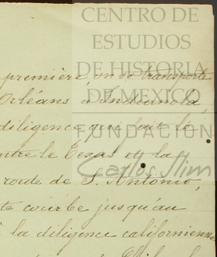 CENTRO DE
ESTUDIOS
DE HISTORIA
DE MEXICO
FUNDACIÓN
Carlos Slim
première, me transporte
Orléans à Indianola,
diligence que fait le
entre le Texas et la
route de S. Antonio,
te courbe jusqu'au
à la diligence californienne